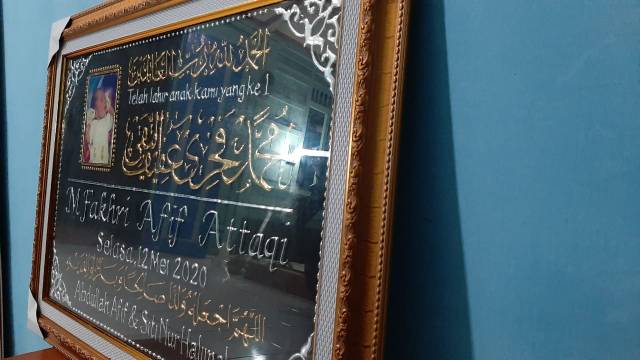 الحمد لله رب العالمين
Telah lahir anak kami yang ke 1
محمد فخري عفيف التقي
M. Fakhri Afif Attaqi
Selasa, 12 Mei 2020
اللهم اجعله ولدا صالحا
Abdullah Afif & Siti Nur